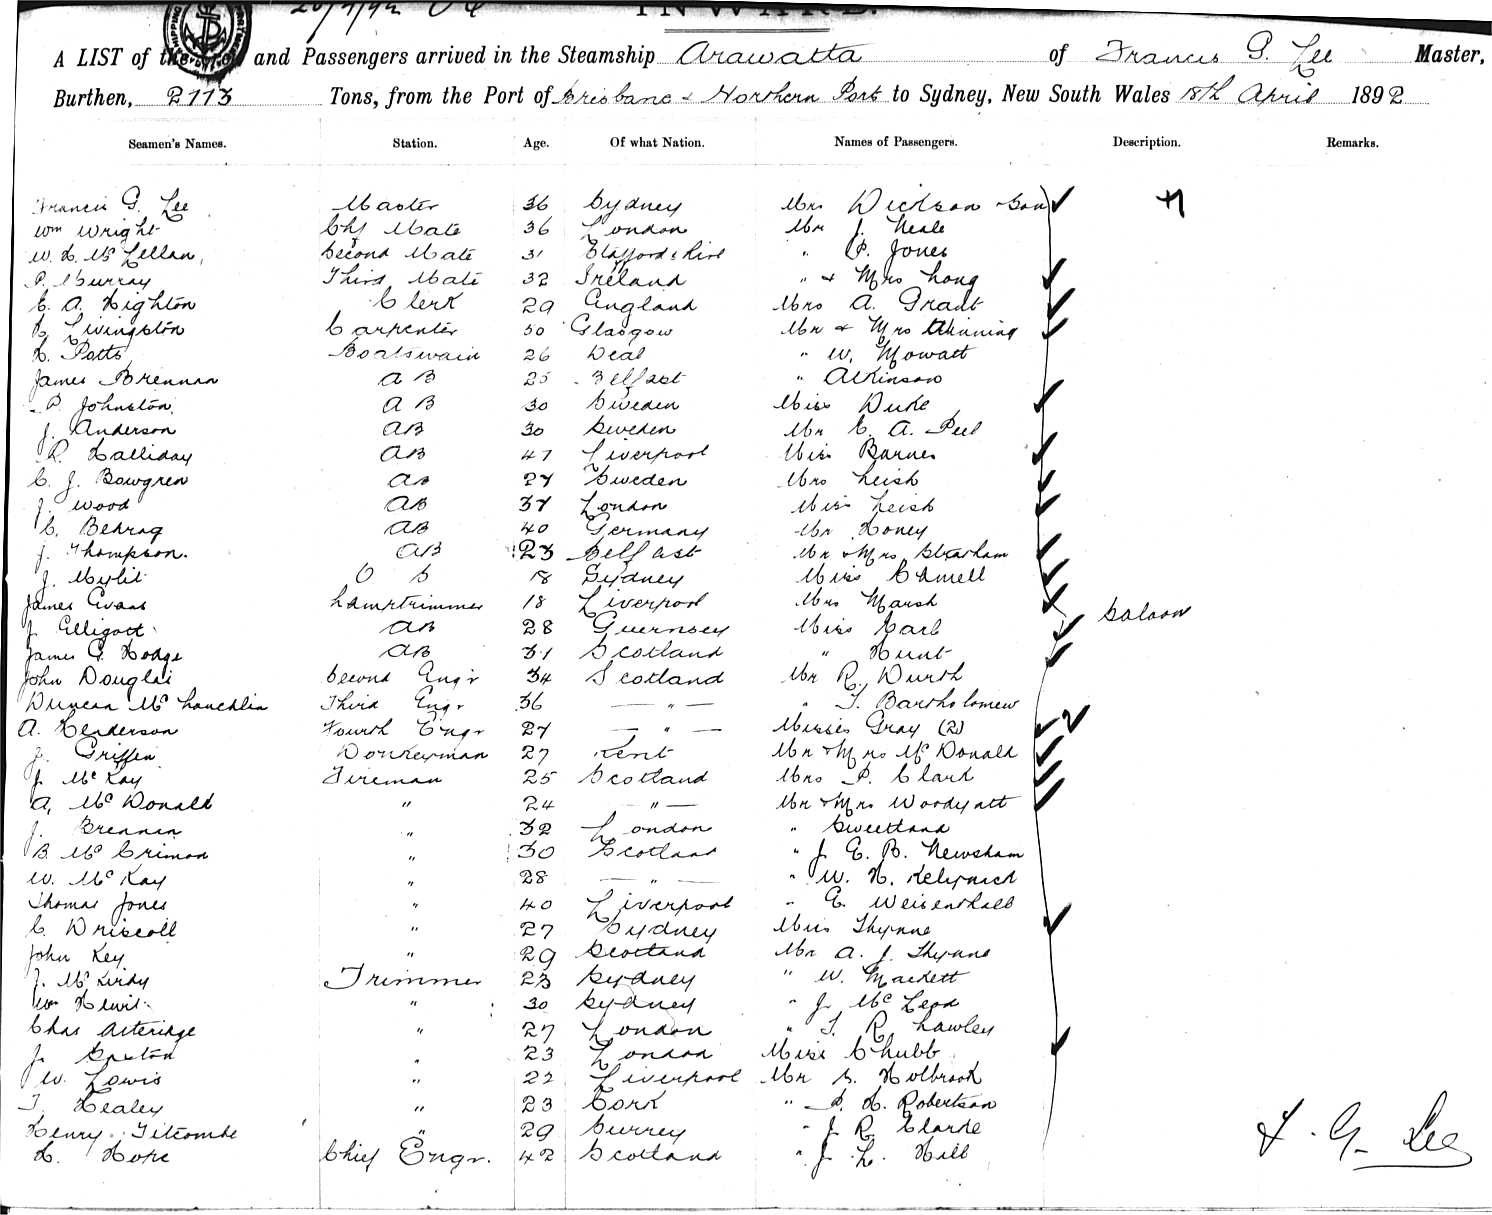 20/4/92
INWARD.
A LIST of the and Passengers arrived in the Steamship Arawatta of Francis G. Lee Master,
Burthen, 2113 Tons, from the Port of Brisbane & Northern Port to Sydney, New South Wales 18th April 1892
Seamen's Names. Station. Age. Of what Nation. Names of Passengers. Description. Remarks.
Francis G. Lee Master 36 Sydney Mrs Dickson & Son
Wm Wright Chf Mate 36 London Mr J. Neale
W. H. McLellan Second Mate 31 Staffordshire " P. Jones
P. Murray Third Mate 32 Ireland " & Mrs Long
E. A. Highton Clerk 29 England Mrs A. Grant
Livingston Carpenter 50 Glasgow Mr & Mrs
H. Potts Boatswain 26 Deal " W. Mowatt
James Brennan AB 25 Belfast " Atkinson
P. Johnston AB 30 Sweden Miss Duke
J. Anderson AB 30 Sweden Mr E. A. Peel
R. Halliday AB 47 Liverpool Miss Barnes
C. J. Bowgren AB 27 Sweden Mrs Leish
J. Wood AB 37 London Miss Leish
C. Behrag AB 40 Germany Mr Honey
J. Thompson. AB 23 Belfast Mr & Mrs
J. OS 18 Sydney Miss Camell
James Evans Lamptrimmer 18 Liverpool Mrs Marsh
J. Elligott AB 28 Guernsey Miss Earl Saloon
James G. Hodge AB 31 Scotland " Hunt
John Douglas Second Engr 34 Scotland Mr R. Durth
Duncan McLauchlin Third Engr 36 — " — " T. Bartholomew
A. Henderson Fourth Engr 27 — " — Misses Gray (2) 2
J. Griffen Donkeyman 27 Kent Mr & Mrs McDonald
J. McKay Fireman 25 Scotland Mrs P. Clark
A. McDonald " 24 — " — Mr & Mrs Woodyatt
J. Brennan " 32 London " Sweetland
B. McCrimon " 30 Scotland " J. E. B. Newsham
W. McKay " 28 — " — " W. H.
Thomas Jones " 40 Liverpool " E. Weisenthall
C. Driscoll " 27 Sydney Miss Thynne
John Key " 29 Scotland Mr A. J. Thynne
J. McKirdy Trimmer 23 Sydney " W. Mackett
Wm " 30 Sydney " J. McLeod
Chas Atteridge " 27 London " T. R. Lawley
J. " 23 London Miss Chubb
W. Lowis " 22 Liverpool Mr S. Holbrook
T. Healey " 23 Cork " P. H. Robertson
Henry Titcombe " 29 Surrey " J. R. Clarke
H. Hope Chief Engr. 42 Scotland " J. L. Hill
F. G. Lee